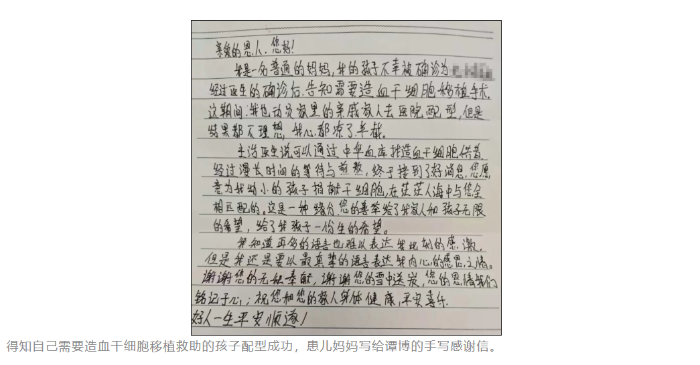 亲爱的恩人,您好!
我是一名普通的妈妈,我的孩子不幸被确诊为
经过医生的确诊后,告知需要造血干细胞移植手术
这期间,我也动员家里的亲戚家人去医院配型,但是
结果都不理想,我心都凉了半截。
主治医生说可以通过中华血库找造血干细胞供者
经过漫长时间的等待与煎熬,终于接到了好消息,您愿
意为我幼小的孩子捐献干细胞,在茫茫人海中与您全
相匹配的,这是一种缘分,您的善举给了我家人和孩子无限
的希望,给了我孩子一份生的希望。
我知道再多的语言也难以表达我此刻的感激,
但是我还是要以最真挚的语言表达我内心的感恩之情。
谢谢您的无私奉献,谢谢您的雪中送炭,您的恩情我们
铭记于心;祝您和您的家人身体健康,平安喜乐
好人一生平安顺遂!
得知自己需要造血干细胞移植救助的孩子配型成功,患儿妈妈写给谭博的手写感谢信。